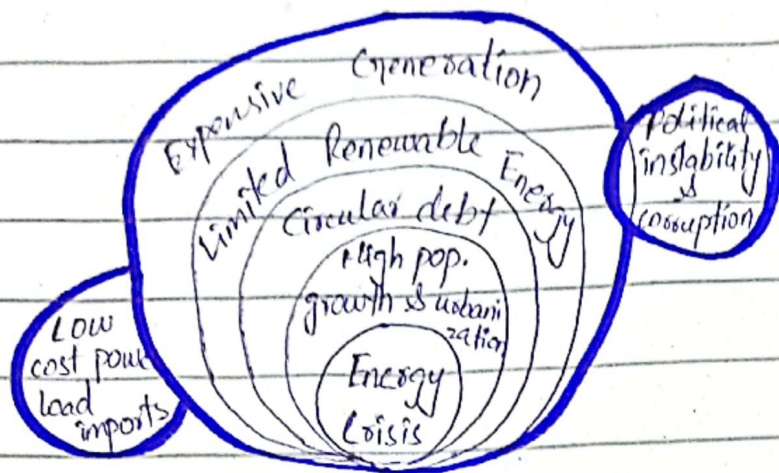 Expensive Generation
Limited Renewable Energy
Circular debt
High pop.
growth & urbani
zation
Energy
Crisis
Political
instability
&
corruption
Low
cost powe
load
imports